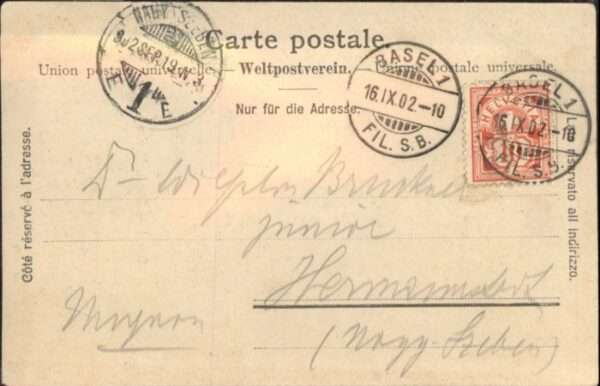 Carte postale.
Union postale universelle. — Weltpostverein. — Unione postale universale.
Nur für die Adresse.
Côté réservé à l'adresse.
Lato riservato all indirizzo.
NAGY-SZEBEN
902 SEP. 19. N
1
E E
BASEL 1
16.IX.02.-10
FIL. S.B.
BASEL 1
16.IX.02.-10
FIL. S.B.
HELVE
Dr
Bruckner
junior
Hermannstadt
(Nagy Szeben)
Ungarn